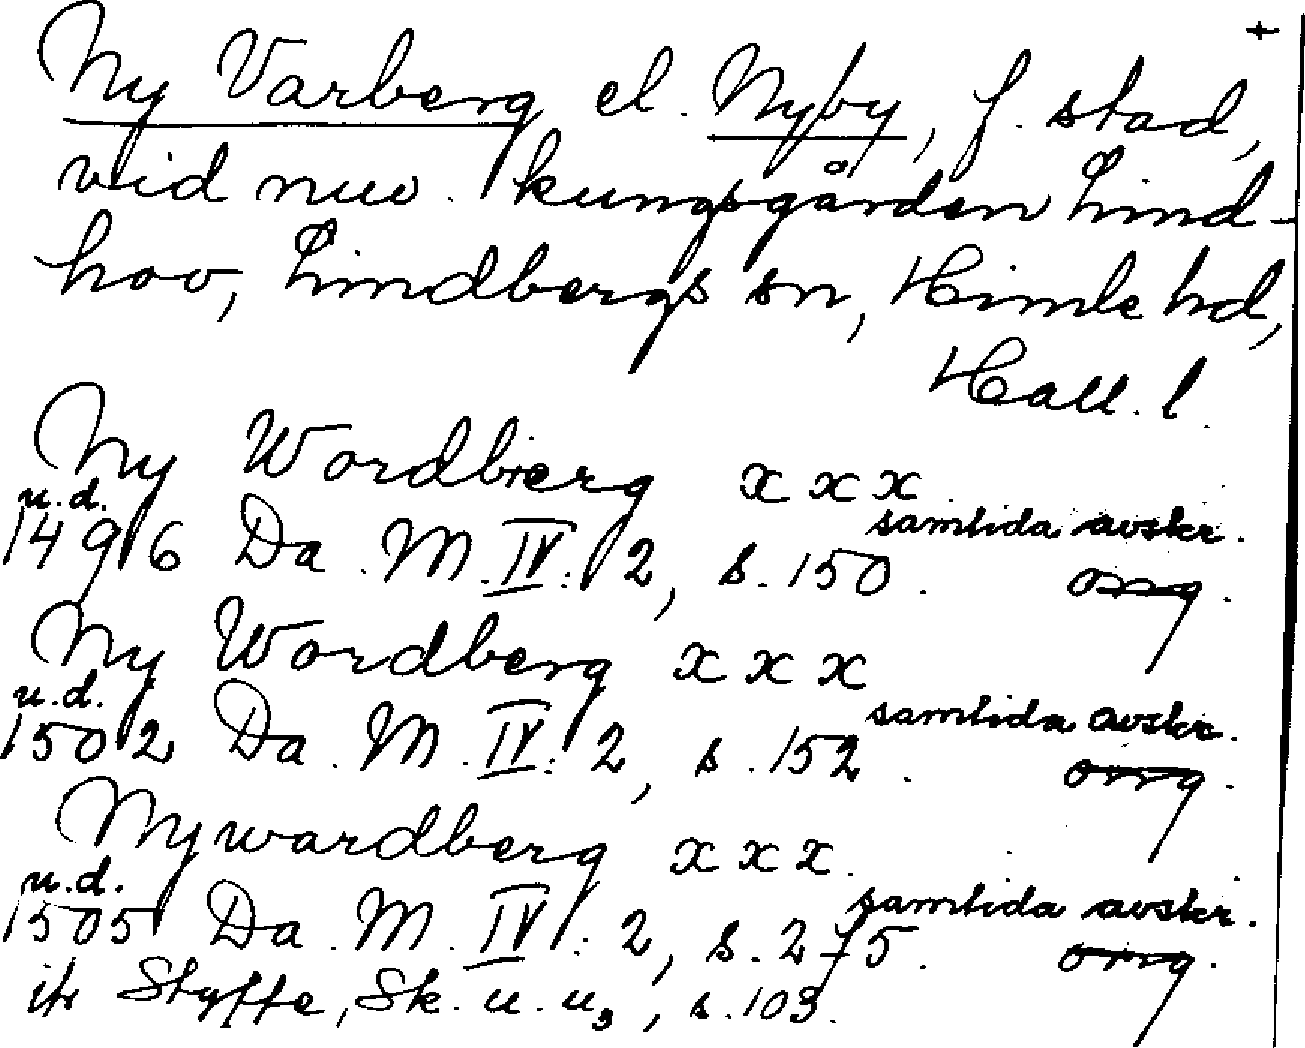 +
Ny Varberg el. Nyby, f. stad,
vid nuv. kungsgården Lind-
hov, Lindbergs sn, Himle hd,
Hall. l.
Ny Wordbierg x x x.
u.d. samtida avskr.
1496 Da. M. IV: 2, s. 150. orig.
Ny Wordberg x x x
u.d. samtida avskr.
1502 Da. M. IV: 2, s. 152. orig.
Nywardberg x x x.
u.d. samtida avskr.
1505 Da. M. IV: 2, s. 275. orig.
jfr Styffe, Sk. u. u₃, s. 103.